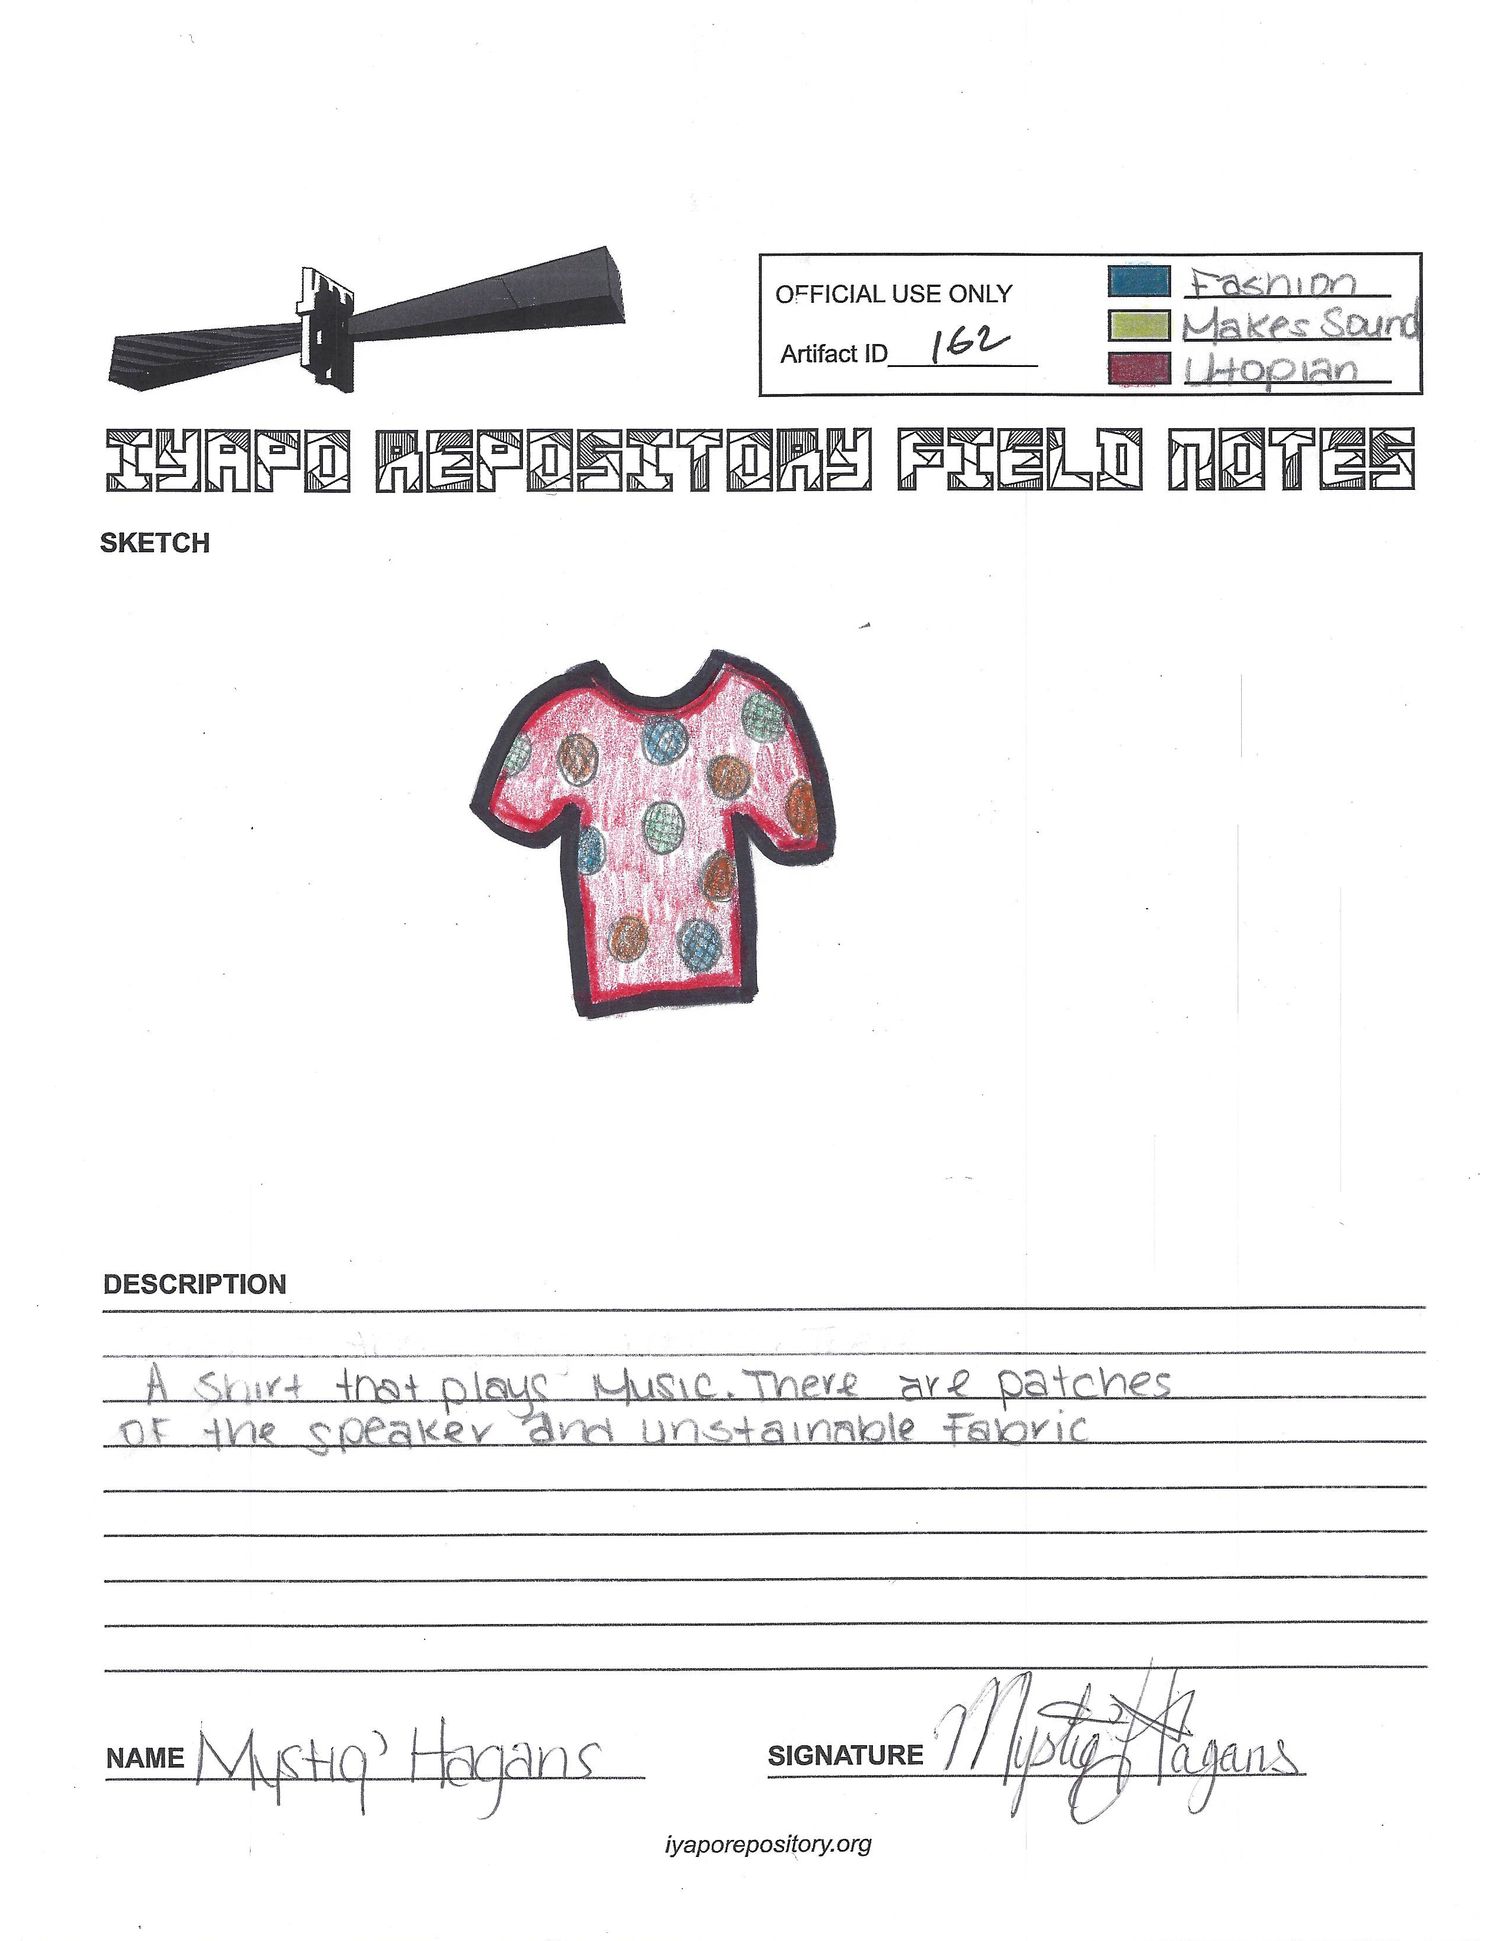 OFFICIAL USE ONLY
Artifact ID 162
Fashion
Makes Sound
Utopian
IYAPO REPOSITORY FIELD NOTES
SKETCH
DESCRIPTION
A shirt that plays Music. There are patches
of the speaker and unstainable Fabric
NAME Mystiq' Hagans
SIGNATURE Mystiq' Hagans
iyaporepository.org